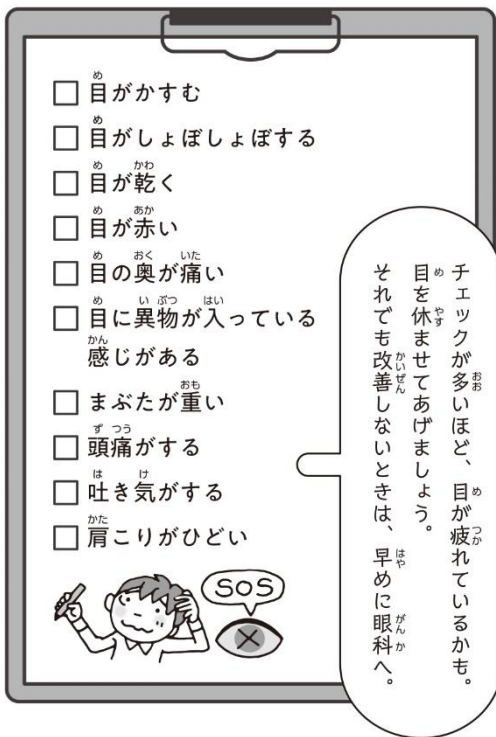 目がかすむ
目がしょぼしょぼする
目が乾く
目が赤い
目の奥が痛い
目に異物が入っている
感じがある
まぶたが重い
頭痛がする
吐き気がする
肩こりがひどい
SOS
チェックが多いほど、目が疲れているかも。
目を休ませてあげましょう。
それでも改善しないときは、早めに眼科へ。